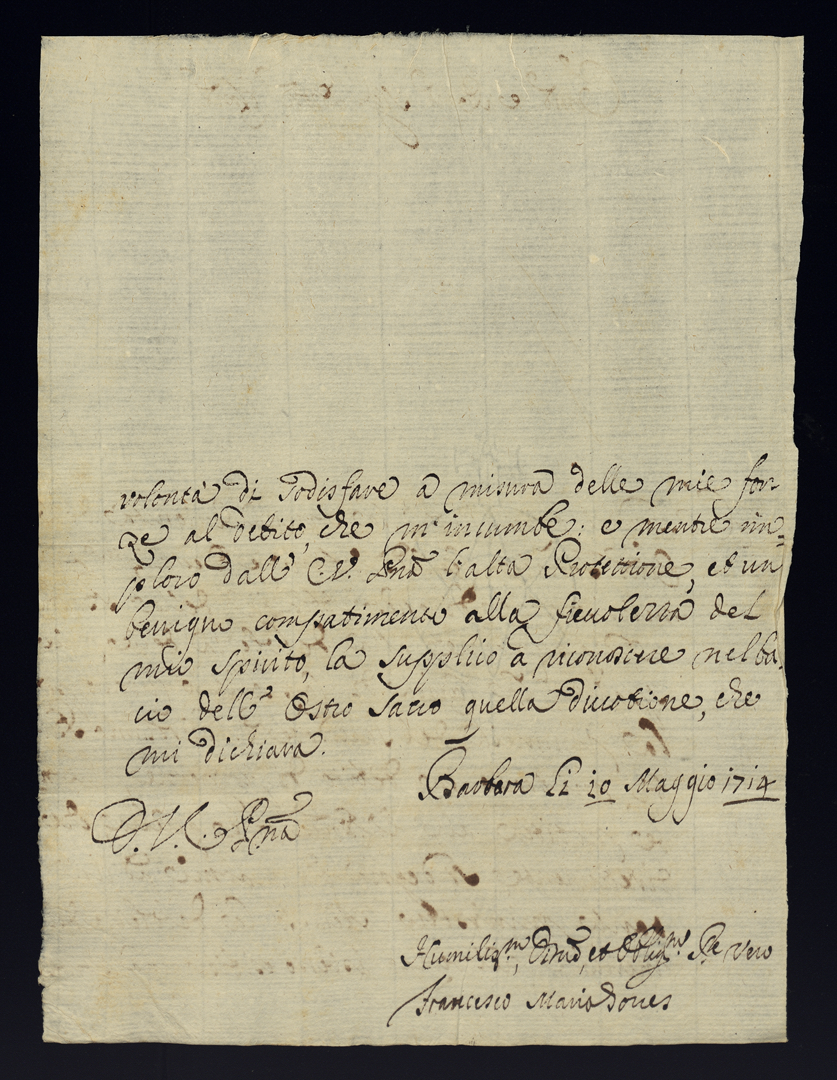 volontà di sodisfare a misura delle mie for-
ze al debito, che m'incumbe: e mentre im=
ploro dall' E.V. Pma l'alta Protettione, et un
benigno compatimento alla fieuolezza del
mio spirito, la supplico à riconoscere nel ba-
cio dell' Ostro sacro quella diuotione, che
mi dichiara.
Barbara li 10 Maggio 1714
D. V. Pma
Humilissmo, et Obligmo Re Vero
Francesco Maria